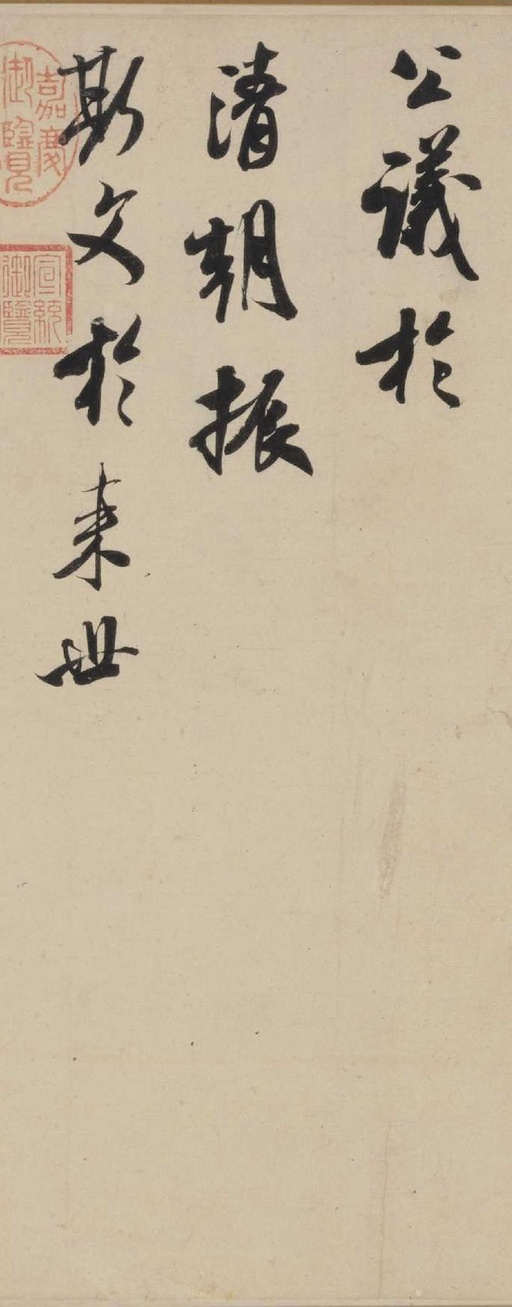 公議於
清朝振
斯文於来世
嘉慶御覽
宣統御覽